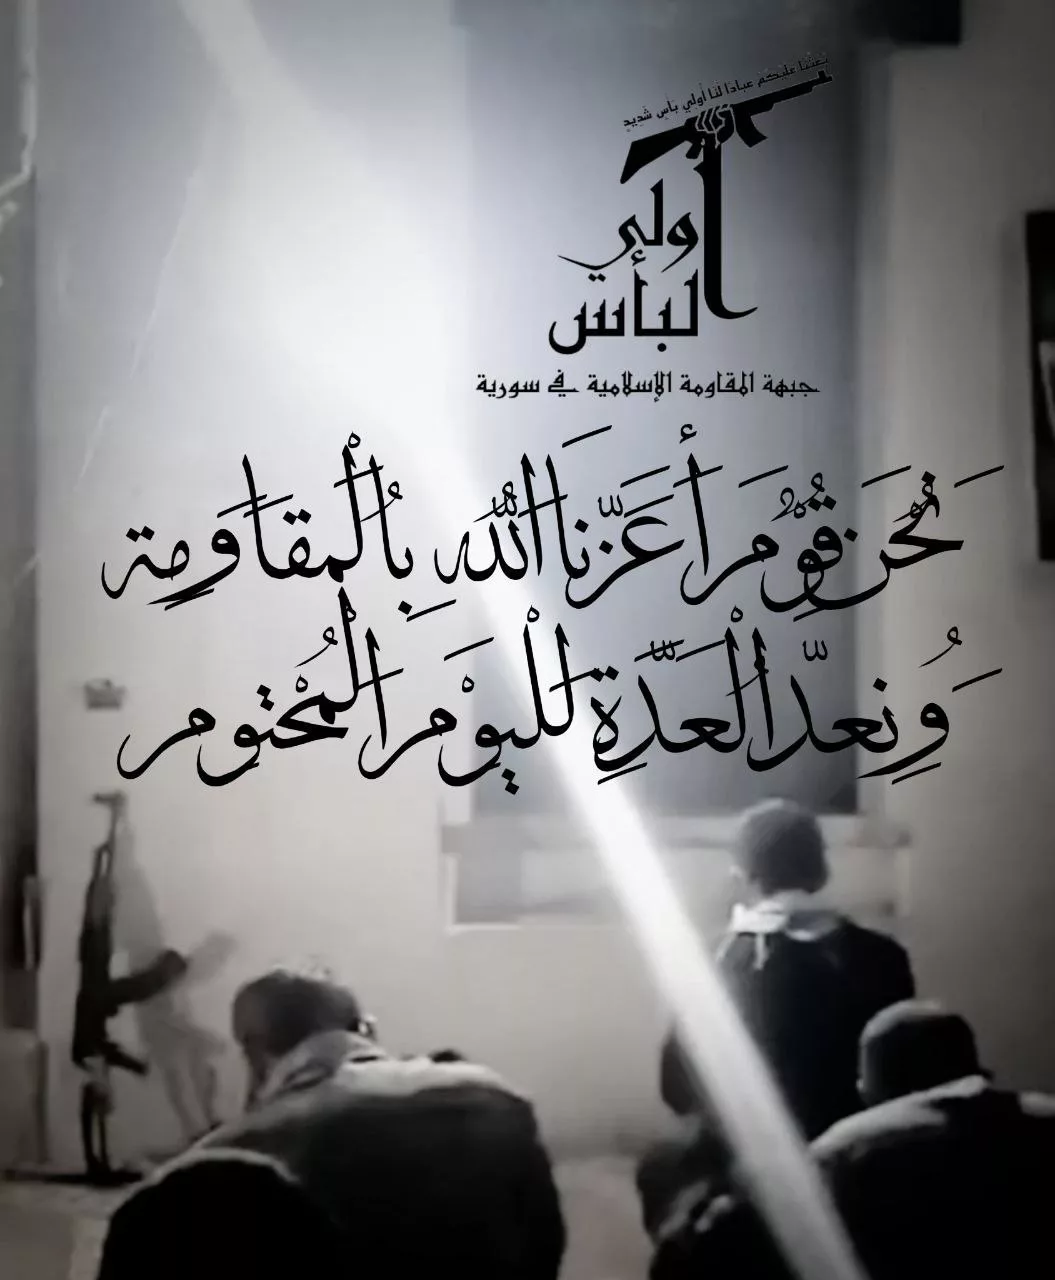 بَعَثْنَا عَلَيْكُمْ عِبَادًا لَّنَا أُولِي بَأْسٍ شَدِيدٍ
أولي
البأس
جبهة المقاومة الإسلامية في سورية
نَحنُ قَومٌ أَعَزَّنَا اللّٰهُ بِالْمُقَاوَمَة
وَنُعِدُّ الْعُدَّةَ لِلْيَوْمِ الْمَحْتُوم